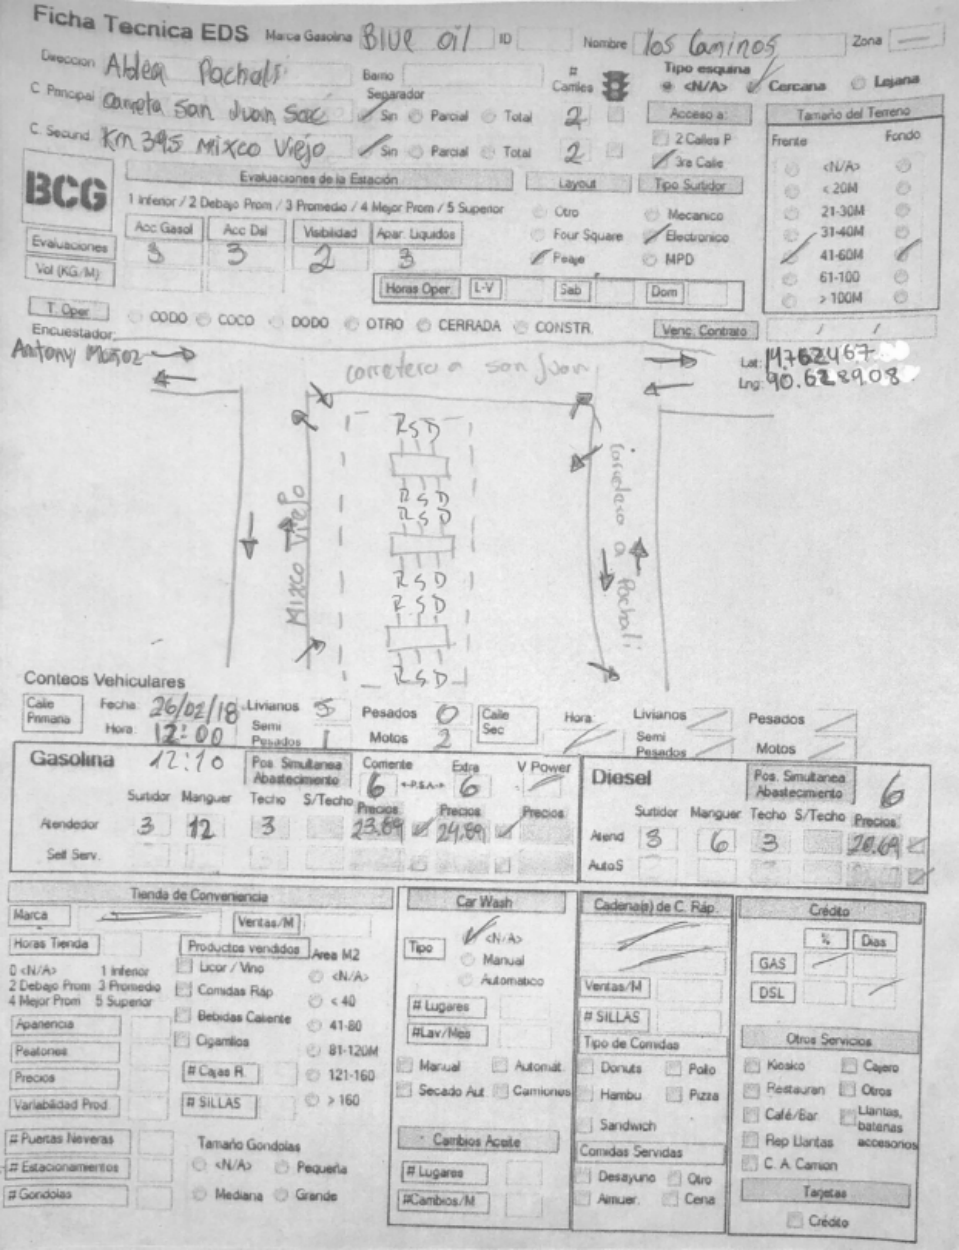 Ficha Tecnica EDS Marca Gasolina Blue oil ID Nombre los Caminos Zona —
Direccion Aldea Pachali Barrio # Carriles Tipo esquina <N/A> Cercana Lejana
C. Principal Carreta San Juan Sac Separador Sin Parcial Total 2 Acceso a: Tamaño del Terreno
C. Secund. Km 39.5 Mixco Viejo Sin Parcial Total 2 2 Calles P Frente Fondo
3ra Calle <N/A>
BCG Evaluaciones de la Estación Layout Tipo Surtidor < 20M
1 Inferior / 2 Debajo Prom / 3 Promedio / 4 Mejor Prom / 5 Superior Otro Mecanico 21-30M
Acc Gasol Acc Dsl Visibilidad Apar. Liquidos Four Square Electronico 31-40M
Evaluaciones 3 3 2 3 Peaje MPD 41-60M
Vol (KG/M) Horas Oper. L-V Sab Dom 61-100
> 100M
T. Oper CODO COCO DODO OTRO CERRADA CONSTR. Venc. Contrato / /
Encuestador:
Antony Muñoz Lat: 14.762467
carretera a san Juan Lng: 90.628908
R S D
R S D
R S D
R S D
R S D
R S D
Mixco Viejo
carretera a Pachali
Conteos Vehiculares
Calle Primaria Fecha 26/02/18 Livianos 5 Pesados 0 Calle Sec Hora: Livianos Pesados
Hora: 12:00 Semi Pesados 1 Motos 2 Semi Pesados Motos
Gasolina 12:10 Pos. Simultanea Abastecimiento Corriente 6 <-P.S.A-> Extra 6 V Power Diesel Pos. Simultanea Abastecimiento 6
Surtidor Manguer Techo S/Techo Precios Precios Precios Surtidor Manguer Techo S/Techo Precios
Atendedor 3 12 3 23.89 24.89 Atend 3 6 3 20.69
Self Serv. Auto S
Tienda de Conveniencia Car Wash Cadena(s) de C. Ráp. Crédito
Marca Ventas/M Tipo <N/A> % Dias
Horas Tienda Productos vendidos Area M2 Manual GAS
0 <N/A> 1 Inferior Licor / Vino <N/A> Automatico Ventas/M DSL
2 Debajo Prom 3 Promedio Comidas Ráp < 40 # Lugares # SILLAS
4 Mejor Prom 5 Superior Bebidas Caliente 41-80 #Lav/Mes Tipo de Comidas Otros Servicios
Apariencia Cigarrillos 81-120M Manual Automát. Donuts Pollo Kiosko Cajero
Peatones # Cajas R. 121-160 Secado Aut. Camiones Hambu Pizza Restauran Otros
Precios # SILLAS > 160 Sandwich Café/Bar Llantas, baterias accesorios
Variabilidad Prod. Cambios Aceite Comidas Servidas Rep Llantas
# Puertas Neveras Tamaño Gondolas # Lugares Desayuno Otro C. A. Camion
# Estacionamientos <N/A> Pequeña #Cambios/M Almuer. Cena Tarjetas
# Gondolas Mediana Grande Crédito